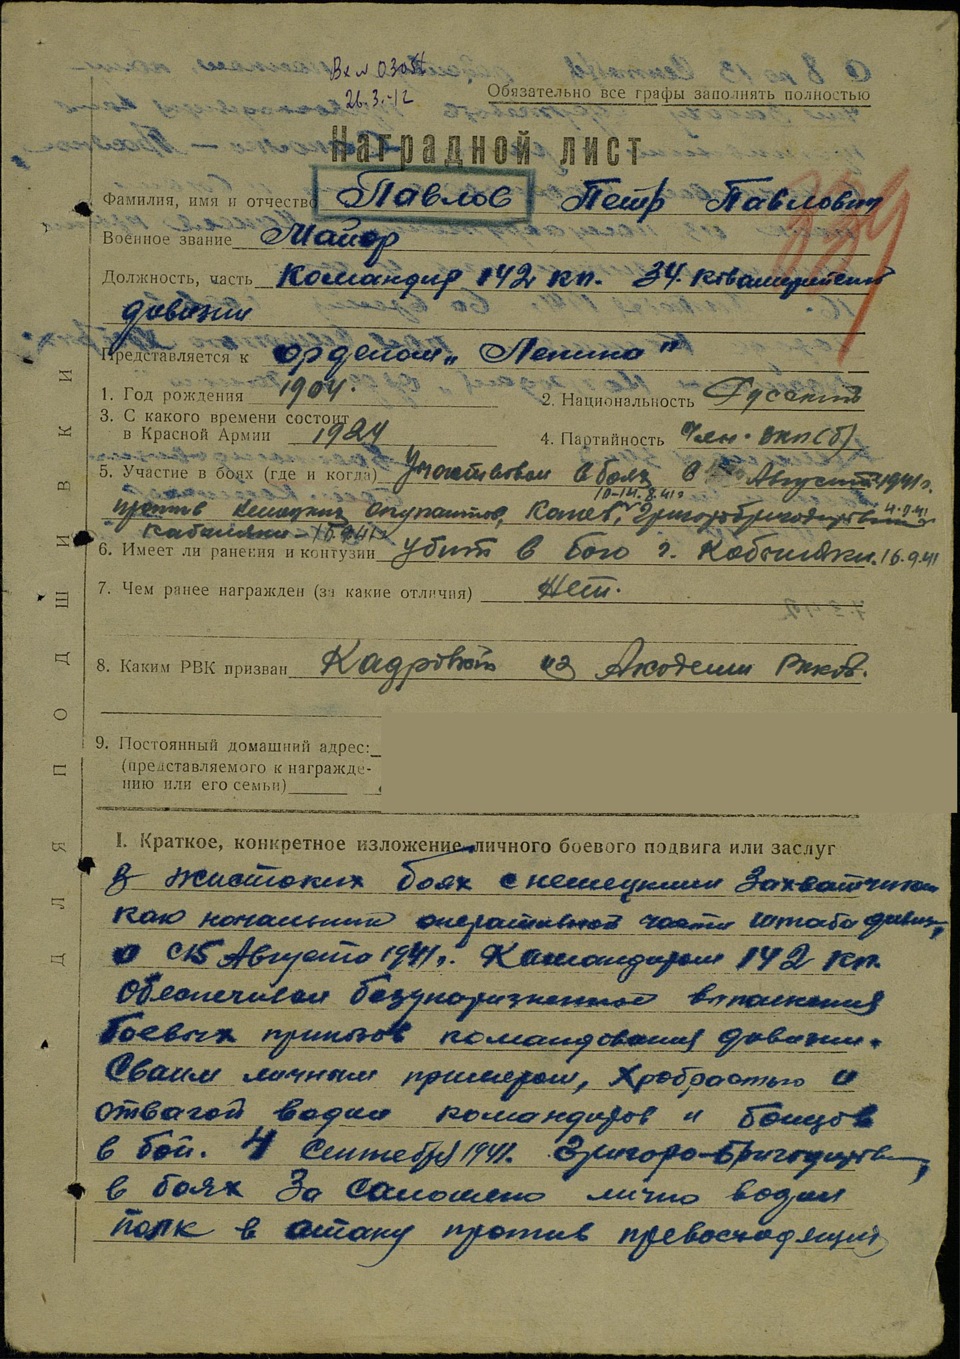 26.3.
Обязательно все графы заполнять полностью
Наградной лист
Фамилия, имя и отчество Павлов Петр Павлович
Военное звание Майор
Должность, часть Командир 142 кп. 34. ковалерийской
дивизии
Представляется к орденом „Ленина"
1. Год рождения 1904. 2. Национальность Русский
3. С какого времени состоит
в Красной Армии 1924 4. Партийность Член. вкп(б)
5. Участие в боях (где и когда) Участвовал в боях с Августа 1941г.
10-14.8.41г
против немецких окупантов, Канев, 4.9.41
Кабеляки – 16.9.41г
6. Имеет ли ранения и контузии убит в бою г. Кобыляки. 16.9.41
7. Чем ранее награжден (за какие отличия) Нет.
8. Каким РВК призван Кадровый из Академии
9. Постоянный домашний адрес:
(представляемого к награжде-
нию или его семьи)
ДЛЯ ПОДШИВКИ
I. Краткое, конкретное изложение личного боевого подвига или заслуг
В жистоких боях с немецкими Захватчиками
как начальник оперативной части штаба дивиз,
а с 15 Августа 1941г. Командиром 142 кп.
Обеспечивал выполнения
боевых приказов командования дивизии.
Своим личным примером, храбростью и
отвагой водил командиров и бойцов
в бой. 4 Сентября 1941.
в боях За лично водил
полк в атаку против превосходящих